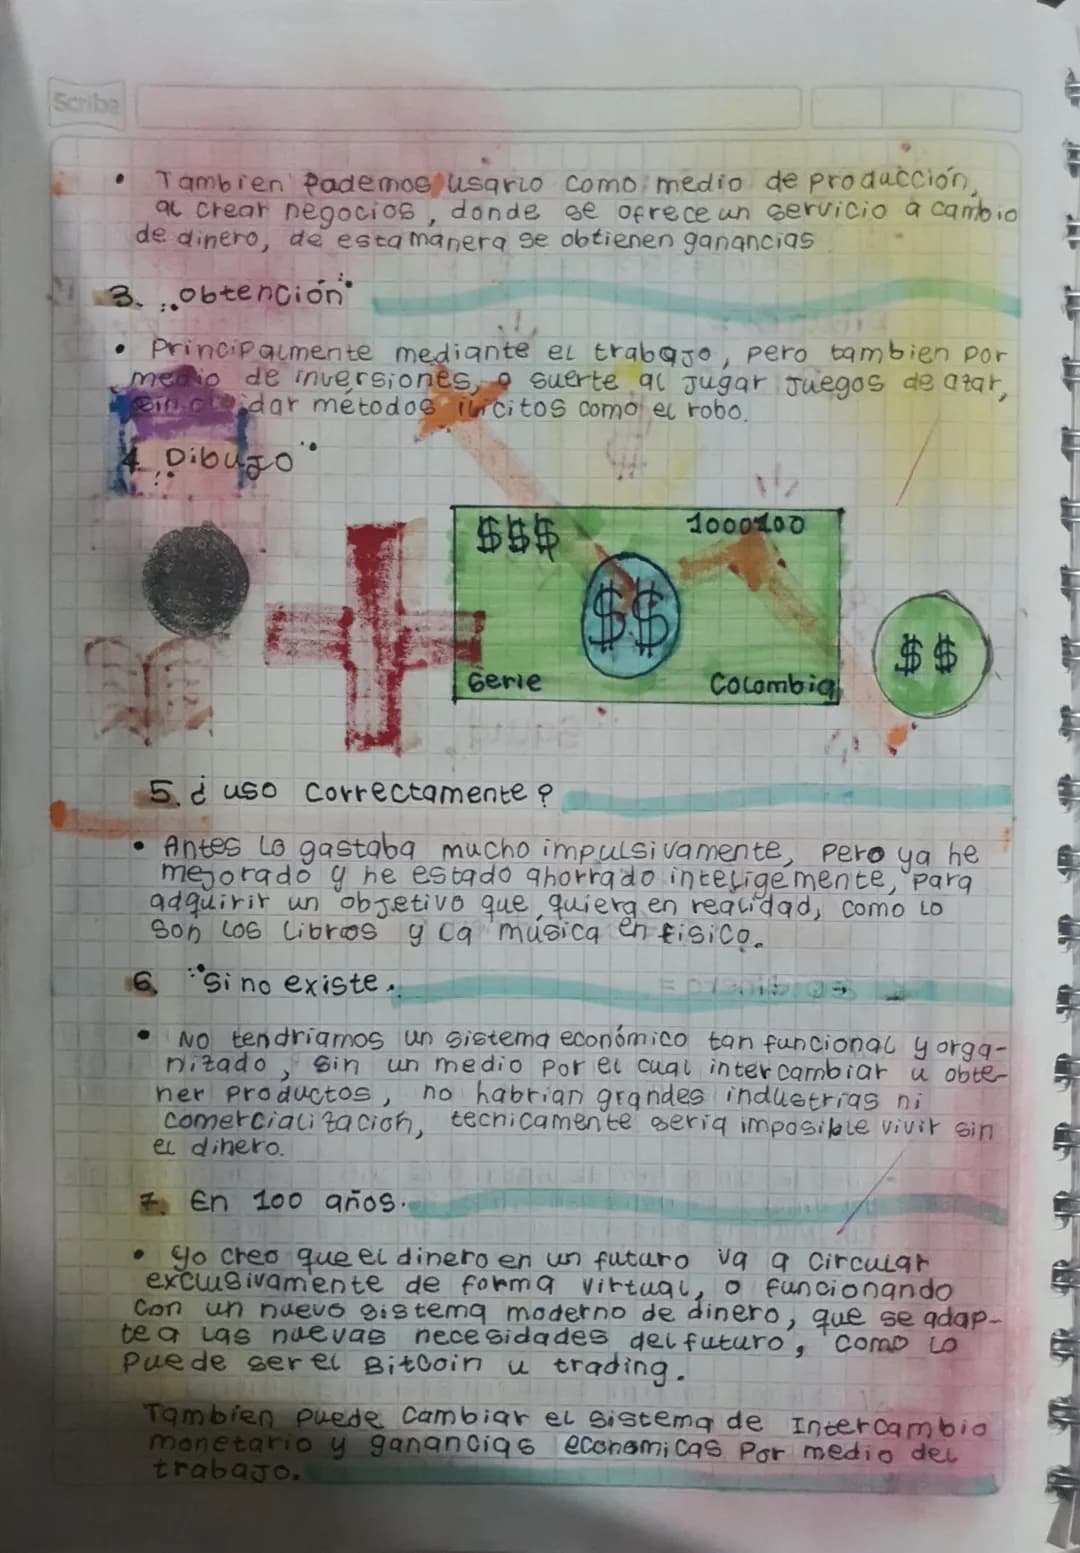 Scribe
• Tambien Pademos usarlo como medio de producción,
al crear negocios, donde se ofrece un servicio a cambio
de dinero, de esta manera se obtienen ganancias
3. obtención
• Principalmente mediante el trabajo, pero tambien por
medio de inversiones, o suerte al jugar juegos de azar,
sin olvidar métodos ilicitos como el robo.
4. Dibujo
$$$ 1000100
$$
$$
Serie Colombia
5. ¿uso correctamente?
• Antes lo gastaba mucho impulsivamente, pero ya he
mejorado y he estado ahorrado inteligemente, para
adquirir un objetivo que quiera en realidad, como lo
son los libros y la música en fisico.
6. Si no existe.
• No tendriamos un sistema económico tan funcional y orga-
nizado, sin un medio por el cual intercambiar u obte-
ner productos, no habrian grandes industrias ni
comercialización, tecnicamente seria imposible vivir sin
el dinero.
7. En 100 años.
• Yo creo que el dinero en un futuro va a circular
exclusivamente de forma virtual, o funcionando
con un nuevo sistema moderno de dinero, que se adap-
te a las nuevas necesidades del futuro, como lo
puede ser el Bitcoin u trading.
Tambien puede cambiar el sistema de Intercambio
monetario y ganancias economicas por medio del
trabajo.